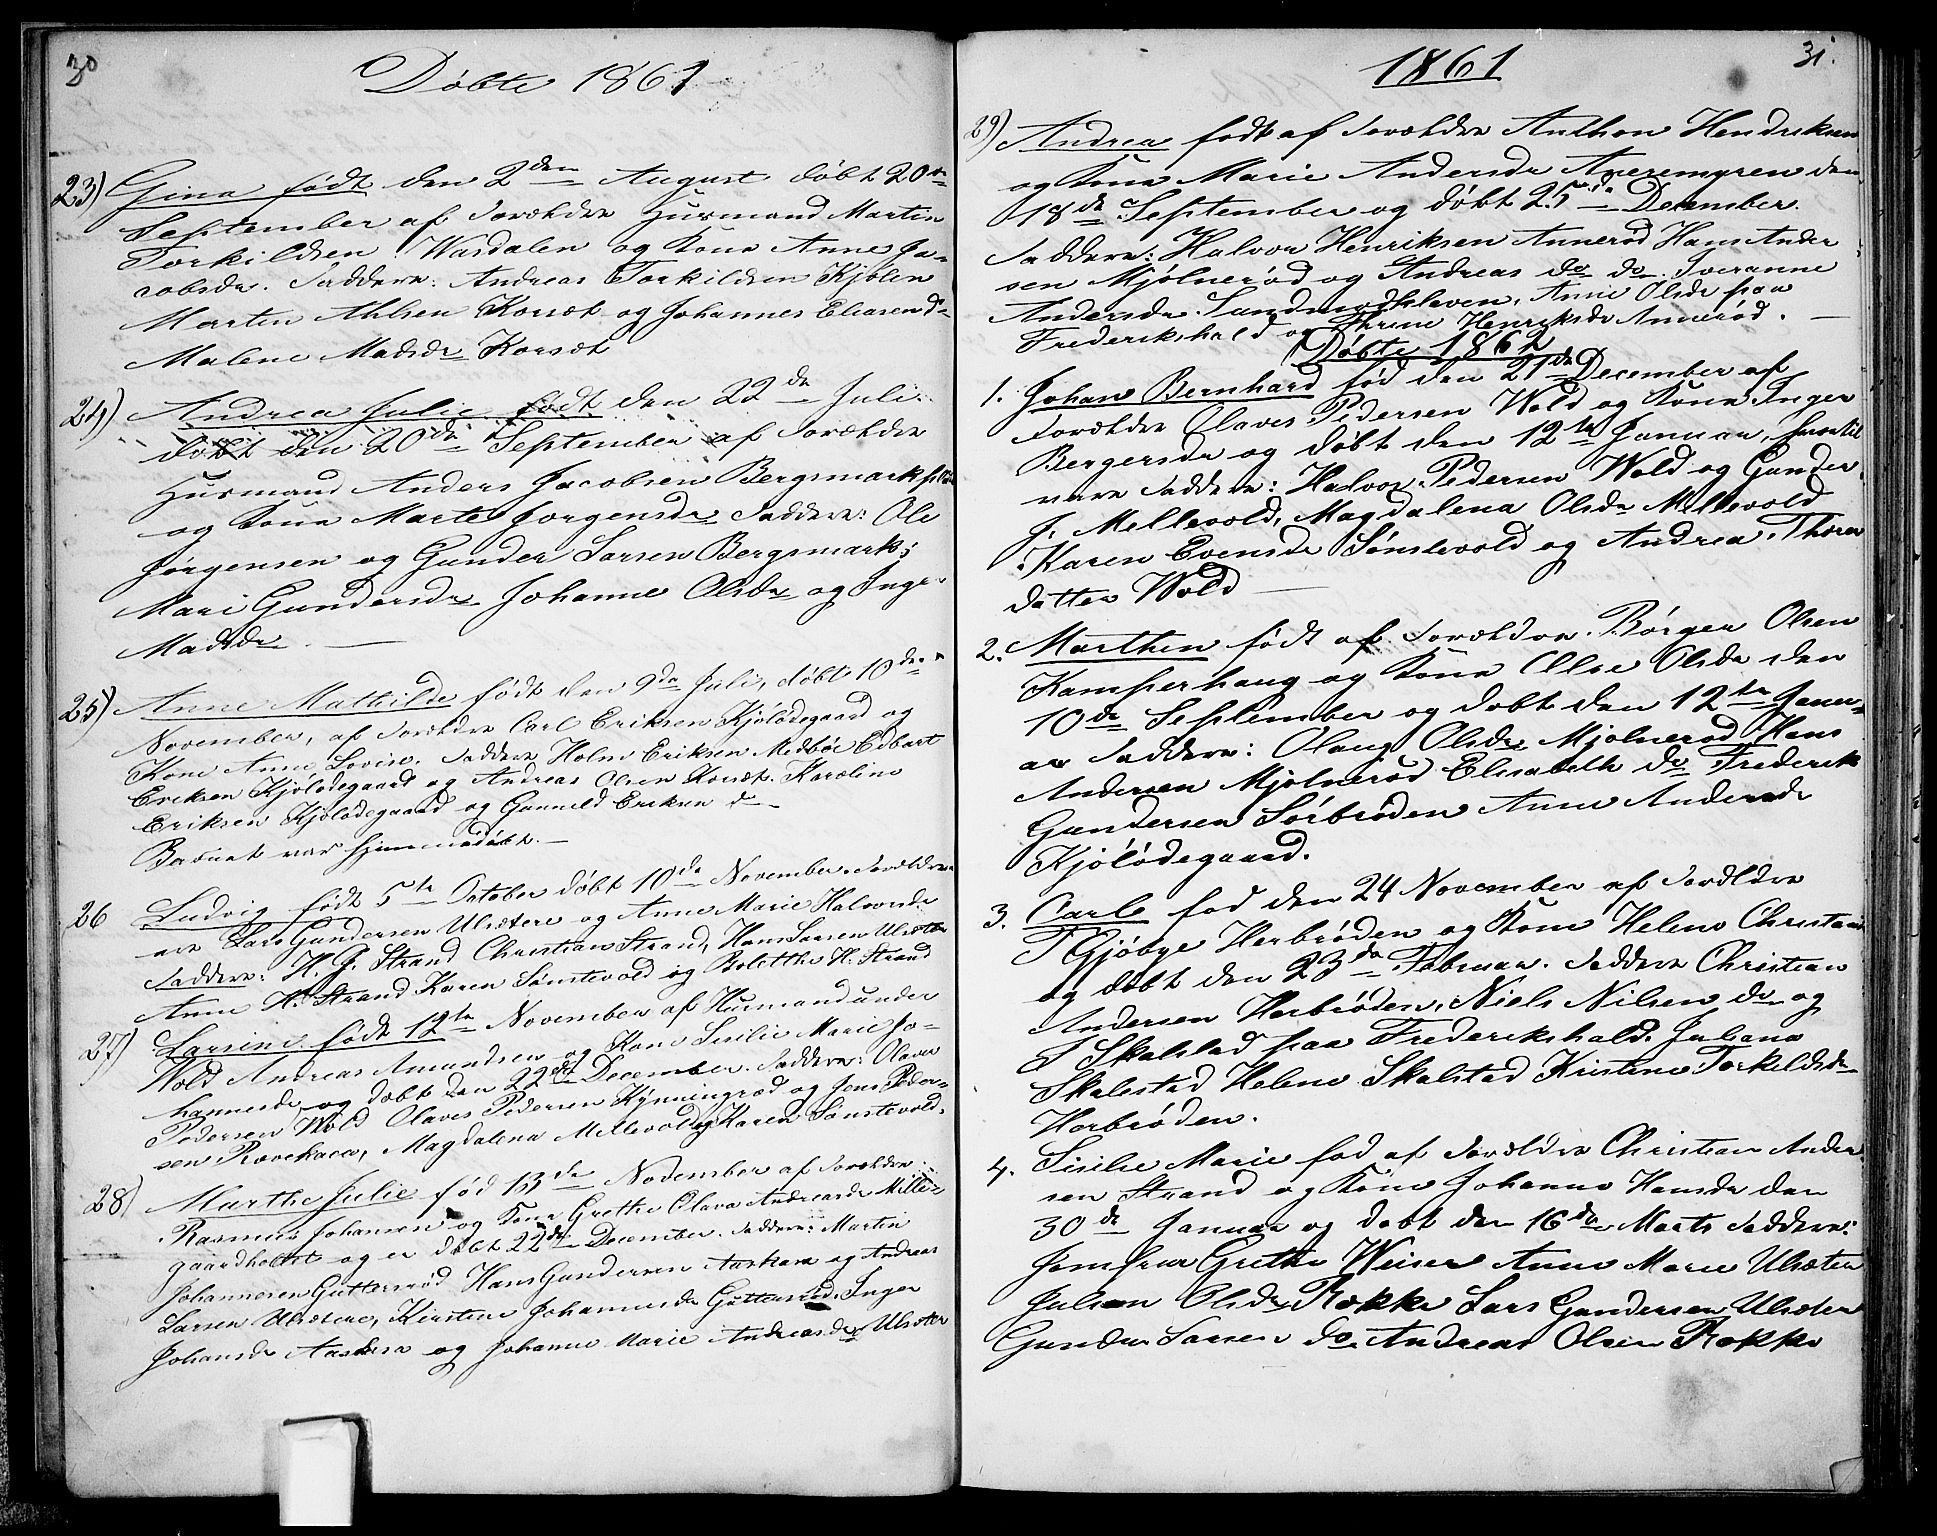 30
Døbte 1861
23) Gina født den 2den August døbt 20de
September af Forældre Husmand Martin
Torkildsen Wardalen og Kone Anne Ja-
cobsdr. Faddere: Andreas Torkildsen Kjølen
Martin Ahlsen Korsæt og Johannes Eliasen do
Malene Madsdr Korsæt
24) Andrea Julie født den 22de Juli
døbt den 20de September af Forældre
Husmand Anders Jacobsen Bergsmark
og Kone Marte Jørgensdr Faddere: Ole
Jørgensen og Gunder Larsen Bergsmark;
Mari Gundersdr Johanne Olsdr og Inge
Madsdr
25) Anne Mathilde født den 9de Juli, døbt 10de
November, af Forældre Carl Eriksen Kjølødegaard og
Kone Anne Lovise. Faddere Holm Eriksen Medbøe Edvart
Eriksen Kjølødegaard og Andreas Olsen Korsæt. Karoline
Eriksen Kjølødegaard og Gunnild Eriksen do
Barnet var hjemmedøbt.
26 Ludvig født 5te October døbt 10de November. Forældre
are Lars Gundersen Ulsætere og Anne Marie Halvorsdr
Faddere: H. G. Strand Christian Strand, Hans Larsen Ulsæter
Anne H. Strand Karen Sønstevold og Bolette H. Strand
27) Larsine født 12te November af Husmand under
Wold Andreas Amundsen og Kone Sisilie Marie Jo-
hannesdr og døbt den 22de December. Faddere: Olaves
Pedersen Wold Olaves Pedersen Kynningrød og Jens Peder-
sen Ravekaca, Magdalena Mellevold og Karen Sønstevold.
28) Marthe Julie fød 13de November af Forældre
Rasmus Johansen og Kone Grethe Olava Andreasdr Mille-
gaardholtet og er døbt 22de December. Faddere: Martin
Johannesen Guttersrød Hans Gundersen Aaskara og Andreas
Larsen Ulsætere, Kirstine Johannesdr Guttersrød, Inger
Johansdr Aaskara og Johanne Marie Andreasdr Ulsæter
1861
31.
29) Andrea født af Forældre Anthon Hendriksen
og Kone Marie Andersdr Aaremyren den
18de September og døbt 25de December.
Faddere: Halvor Henriksen Annerød Hans Ander
sen Mjølnerød og Andreas do do. Iveranne
Andersdr Sundmodkleven, Anne Olsdr paa
Frederikshald og Thrine Henriksdr Annerød.
Døbte 1862
1. Johan Bernhard fød den 21de December af
Forældre Olaves Pedersen Wold og Kone Inger
Bergersdr og døbt den 12te Januar, hertil
vare Faddere: Halvor Pedersen Wold og Gunder
J. Mellevold, Magdalena Olsdr Mellevold
Karen Evensdr Sønstevold og Andrea Thore
datter Wold
2. Marthen født af Forældre Børger Olsen
Kamperhaug og Kone Else Olsdr den
10de September og døbt den 12te Janu-
ar Faddere: Olaug Olsdr Mjølnerød Hans
Andersen Mjølnerød Elisabeth do Frederik
Gundersen Sørbrøden Anne Andersdr
Kjølødegaard.
3. Carl fød den 24 November af Forældre
T Gjøbye Herbrøden og Kone Helene Christians
og døbt den 23de Februar. Faddere Christian
Andersen Herbrøden, Niels Nilsen do og
J Skalstad paa Frederikshald. Juliane
Skalestad Helene Skalstad Kristine Torkeldsdr
Herbrøden.
4. Sisilie Marie fød af Forældre Christian Ander
sen Strand og Kone Johanne Hansdr den
30de Januar og døbt den 16de Marts Faddere:
Jomfrue Grethe Weiser Anne Marie Ulsæter
Julian Olsdr Rokke Lars Gundersen Ulsæter
Gunder Larsen do. Andreas Olsen Rokke